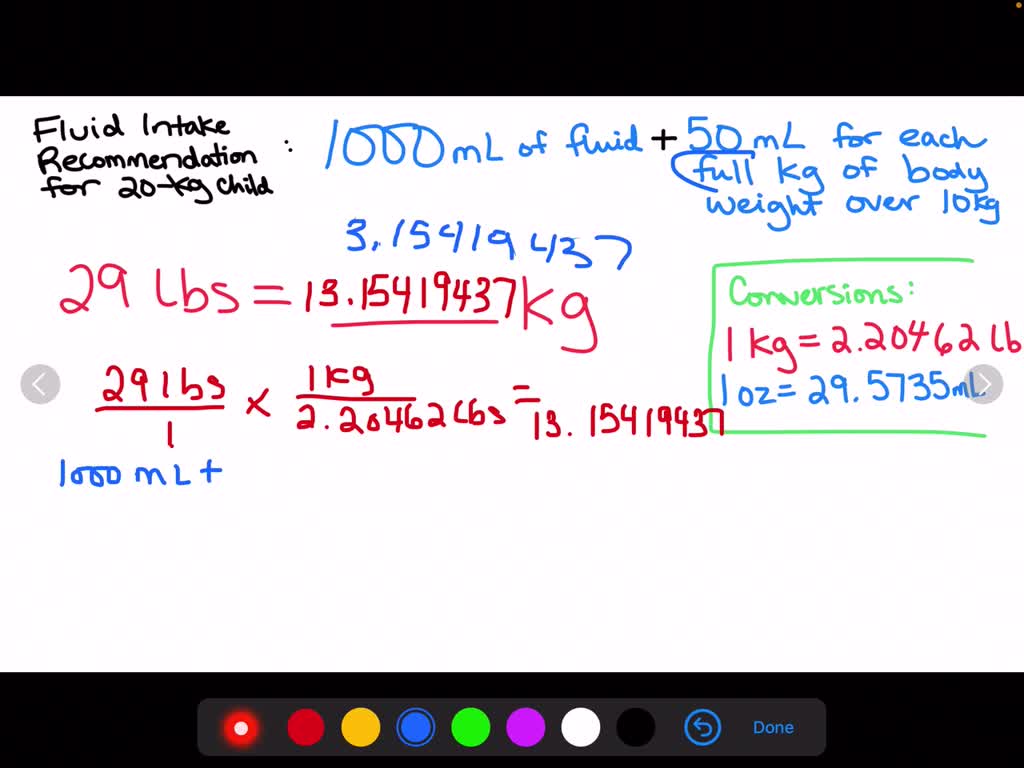 Fluid Intake
Recommendation
for 20-kg Child
: 1000 mL of fluid + 50 mL for each
full kg of body
weight over 10kg
3.15419437
29 lbs = 13.15419437 kg
Conversions:
1 kg = 2.20462 lb
1 oz = 29.5735mL
29 lbs × 1 kg =
1 2.20462 lbs 13.15419437
1000 mL +
Done